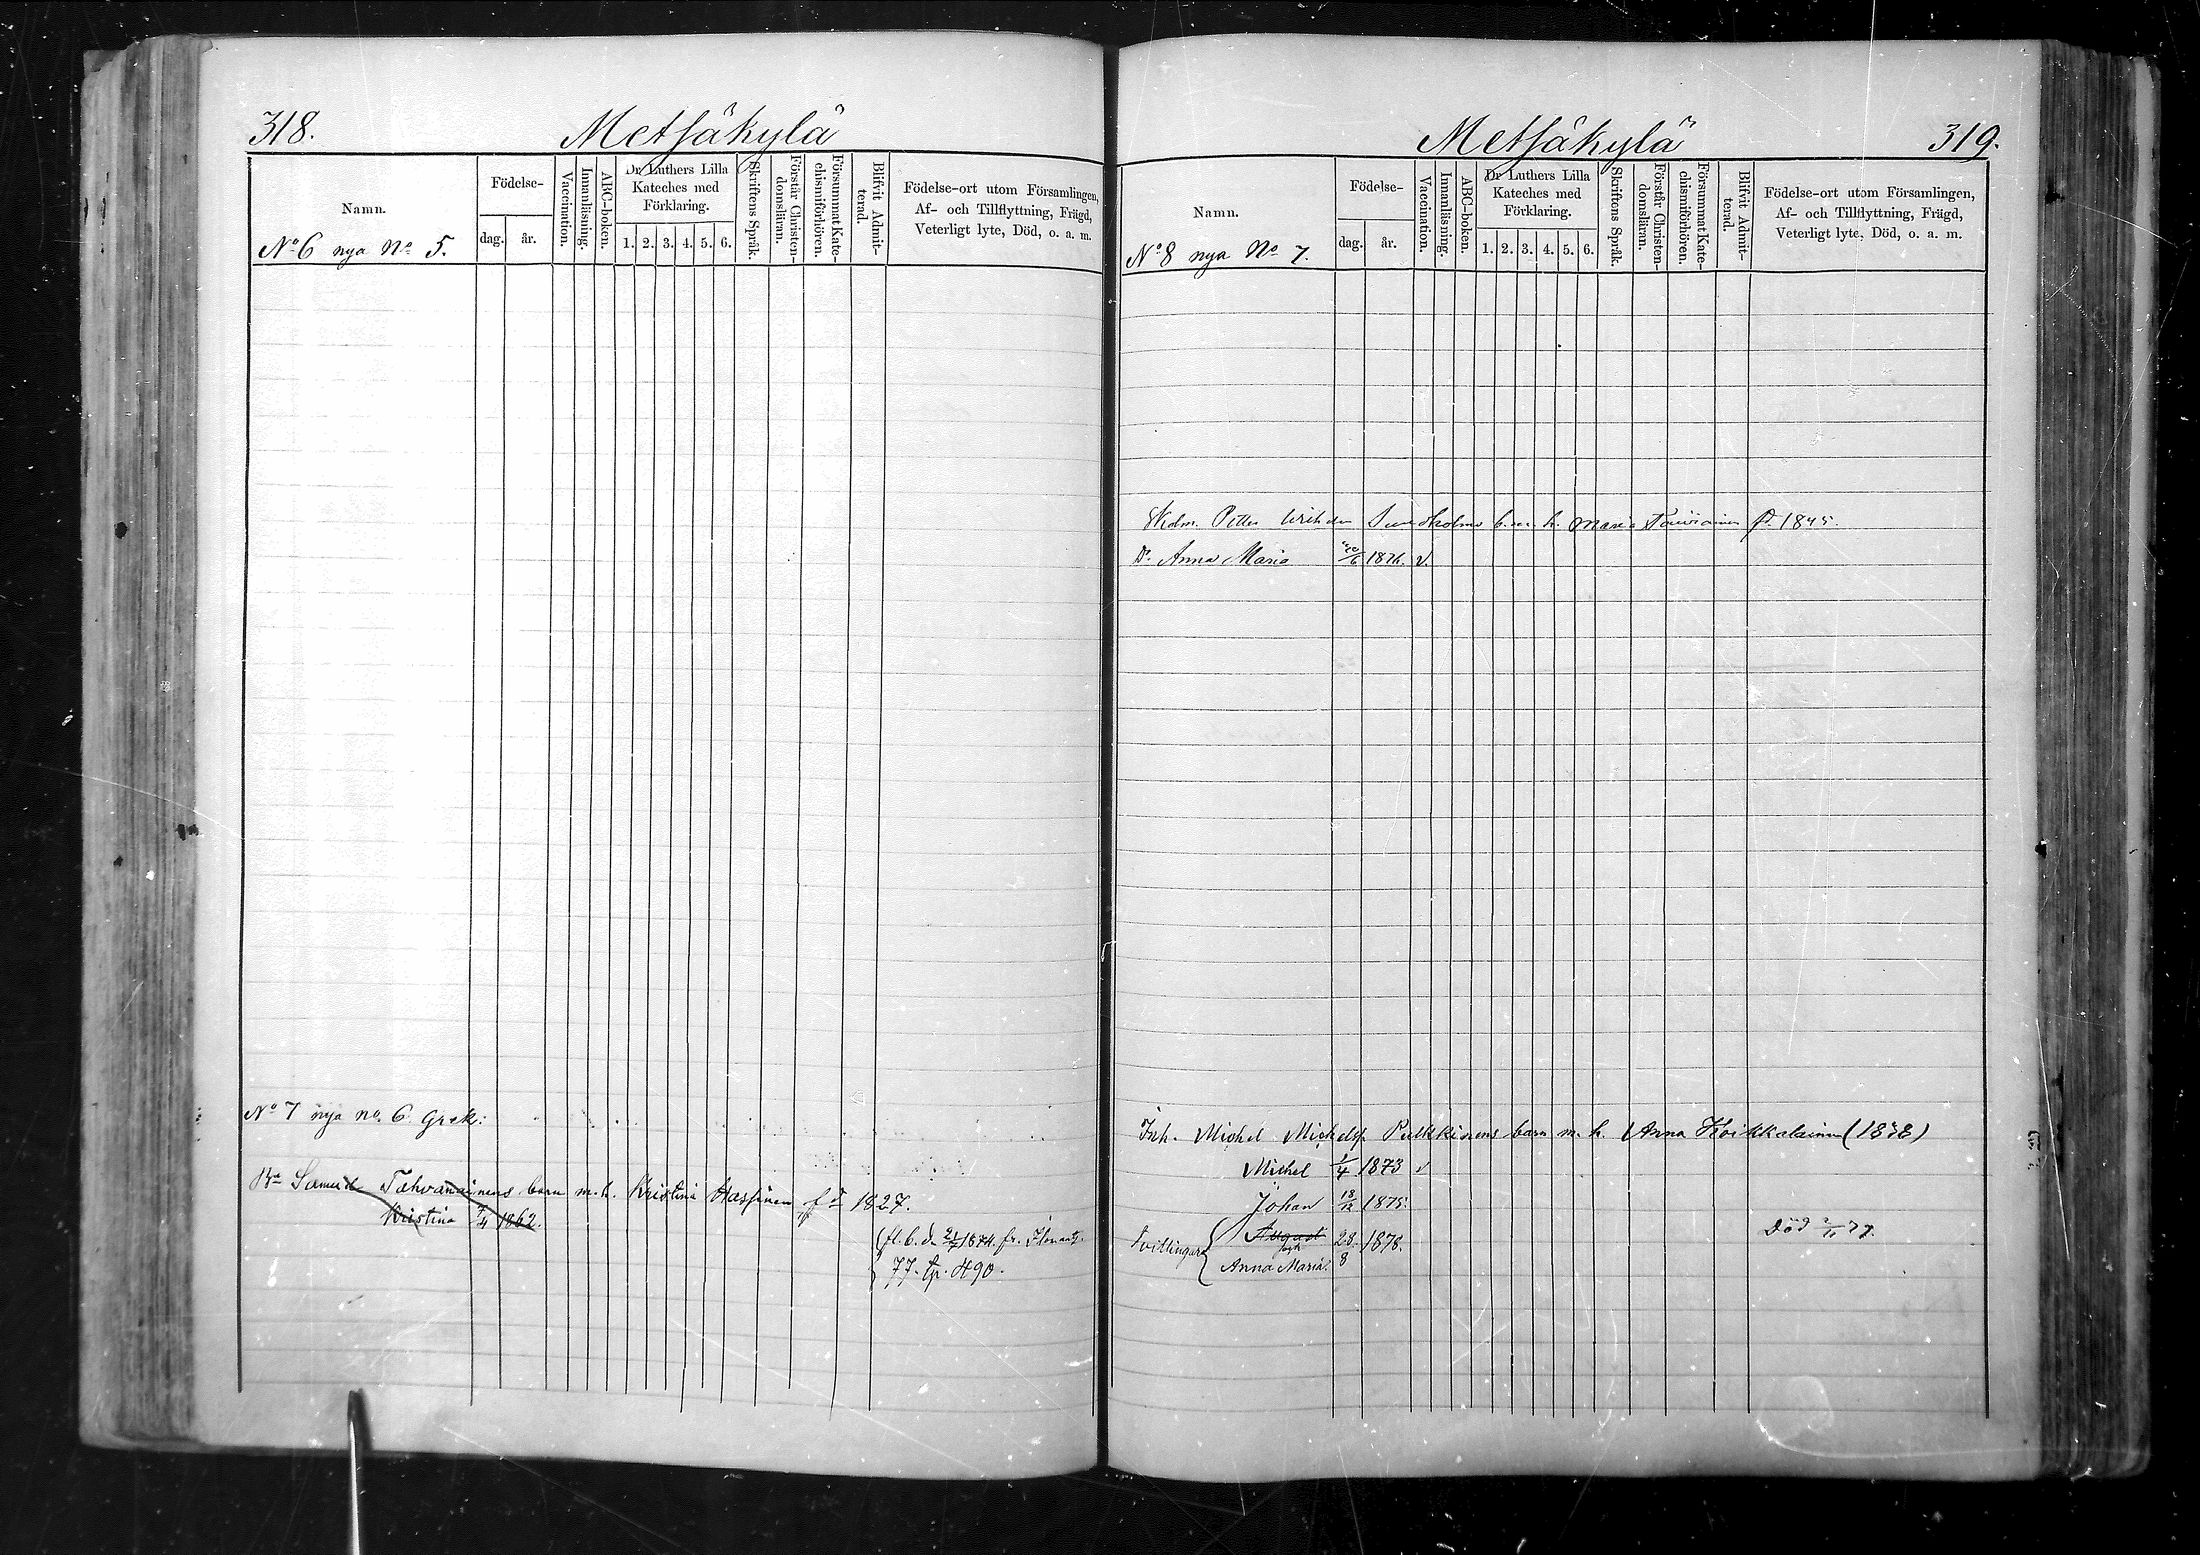 318.
Metsäkylä
Namn.
Födelse-
dag. år.
Vaccination.
Innanläsning.
ABC-boken.
Dr Luthers Lilla
Kateches med
Förklaring.
1. 2. 3. 4. 5. 6.
Skriftens Språk.
Förstår Christen-
domsläran.
Försummat Kate-
chismiförhören.
Blifvit Admit-
terad.
Födelse-ort utom Församlingen,
Af- och Tillflyttning, Frägd,
Veterligt lyte, Död, o. a. m.
No 6 nya No 5.
No 7 nya no. 6. Grek:
Samuel Tahvanainens barn m. h. Kristina Hassinen fd 1827.
Kristina 1862.
fl. b. d. 1874. fr.
77. tp. 490.
Metsäkylä
319.
Namn.
Födelse-
dag. år.
Vaccination.
Innanläsning.
ABC-boken.
Dr Luthers Lilla
Kateches med
Förklaring.
1. 2. 3. 4. 5. 6.
Skriftens Språk.
Förstår Christen-
domsläran.
Försummat Kate-
chismiförhören.
Blifvit Admit-
terad.
Födelse-ort utom Församlingen,
Af- och Tillflyttning, Frägd,
Veterligt lyte, Död, o. a. m.
No 8 nya No 7.
Petter b. m. h. Maria 1845.
D. Anna Maria v.
Inh. Michel Michelsp. Pulkkinens barn m. h. (Anna Hoikkalainen (1838)
Michel 1/4 1873 v
Johan 18/12 1875.
Tvillingar August 28 1878. Död
och
Anna Maria. 8